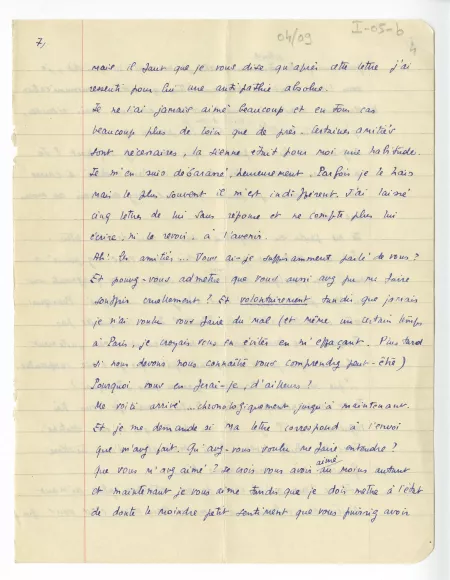 7)
04/09
I-05-b
4
mais il faut que je vous dise qu'après cette lettre j'ai
ressenti pour lui une antipathie absolue.
Je ne l'ai jamais aimé beaucoup et en tous cas
beaucoup plus de loin que de près. Certaines amitiés
sont nécessaires, la sienne était pour moi une habitude.
Je m'en suis débarrassé, heureusement. Parfois je le hais
mais le plus souvent il m'est indifférent. J'ai laissé
cinq lettres de lui sans réponse et ne compte plus lui
écrire, ni le revoir, à l'avenir.
Ah! Les amitiés... Vous ai-je suffisamment parlé de vous?
Et pouvez-vous admettre que vous aussi avez pu me faire
souffrir cruellement? Et volontairement tandis que jamais
je n'ai voulu vous faire du mal (et même un certain temps
à Paris, je croyais vous en éviter en m'effaçant. Plus tard
si nous devons nous connaître vous comprendrez peut-être)
Pourquoi vous en ferai-je, d'ailleurs?
Me voici arrivé... chronologiquement jusqu'à maintenant.
Et je me demande si ma lettre correspond à l'envoi
que m'avez fait. Qu'avez-vous voulu me faire entendre?
Que vous m'avez aimé? Je crois vous avoir aimé au moins autant
et maintenant je vous aime tandis que je dois mettre à l'état
de doute le moindre petit sentiment que vous puissiez avoir